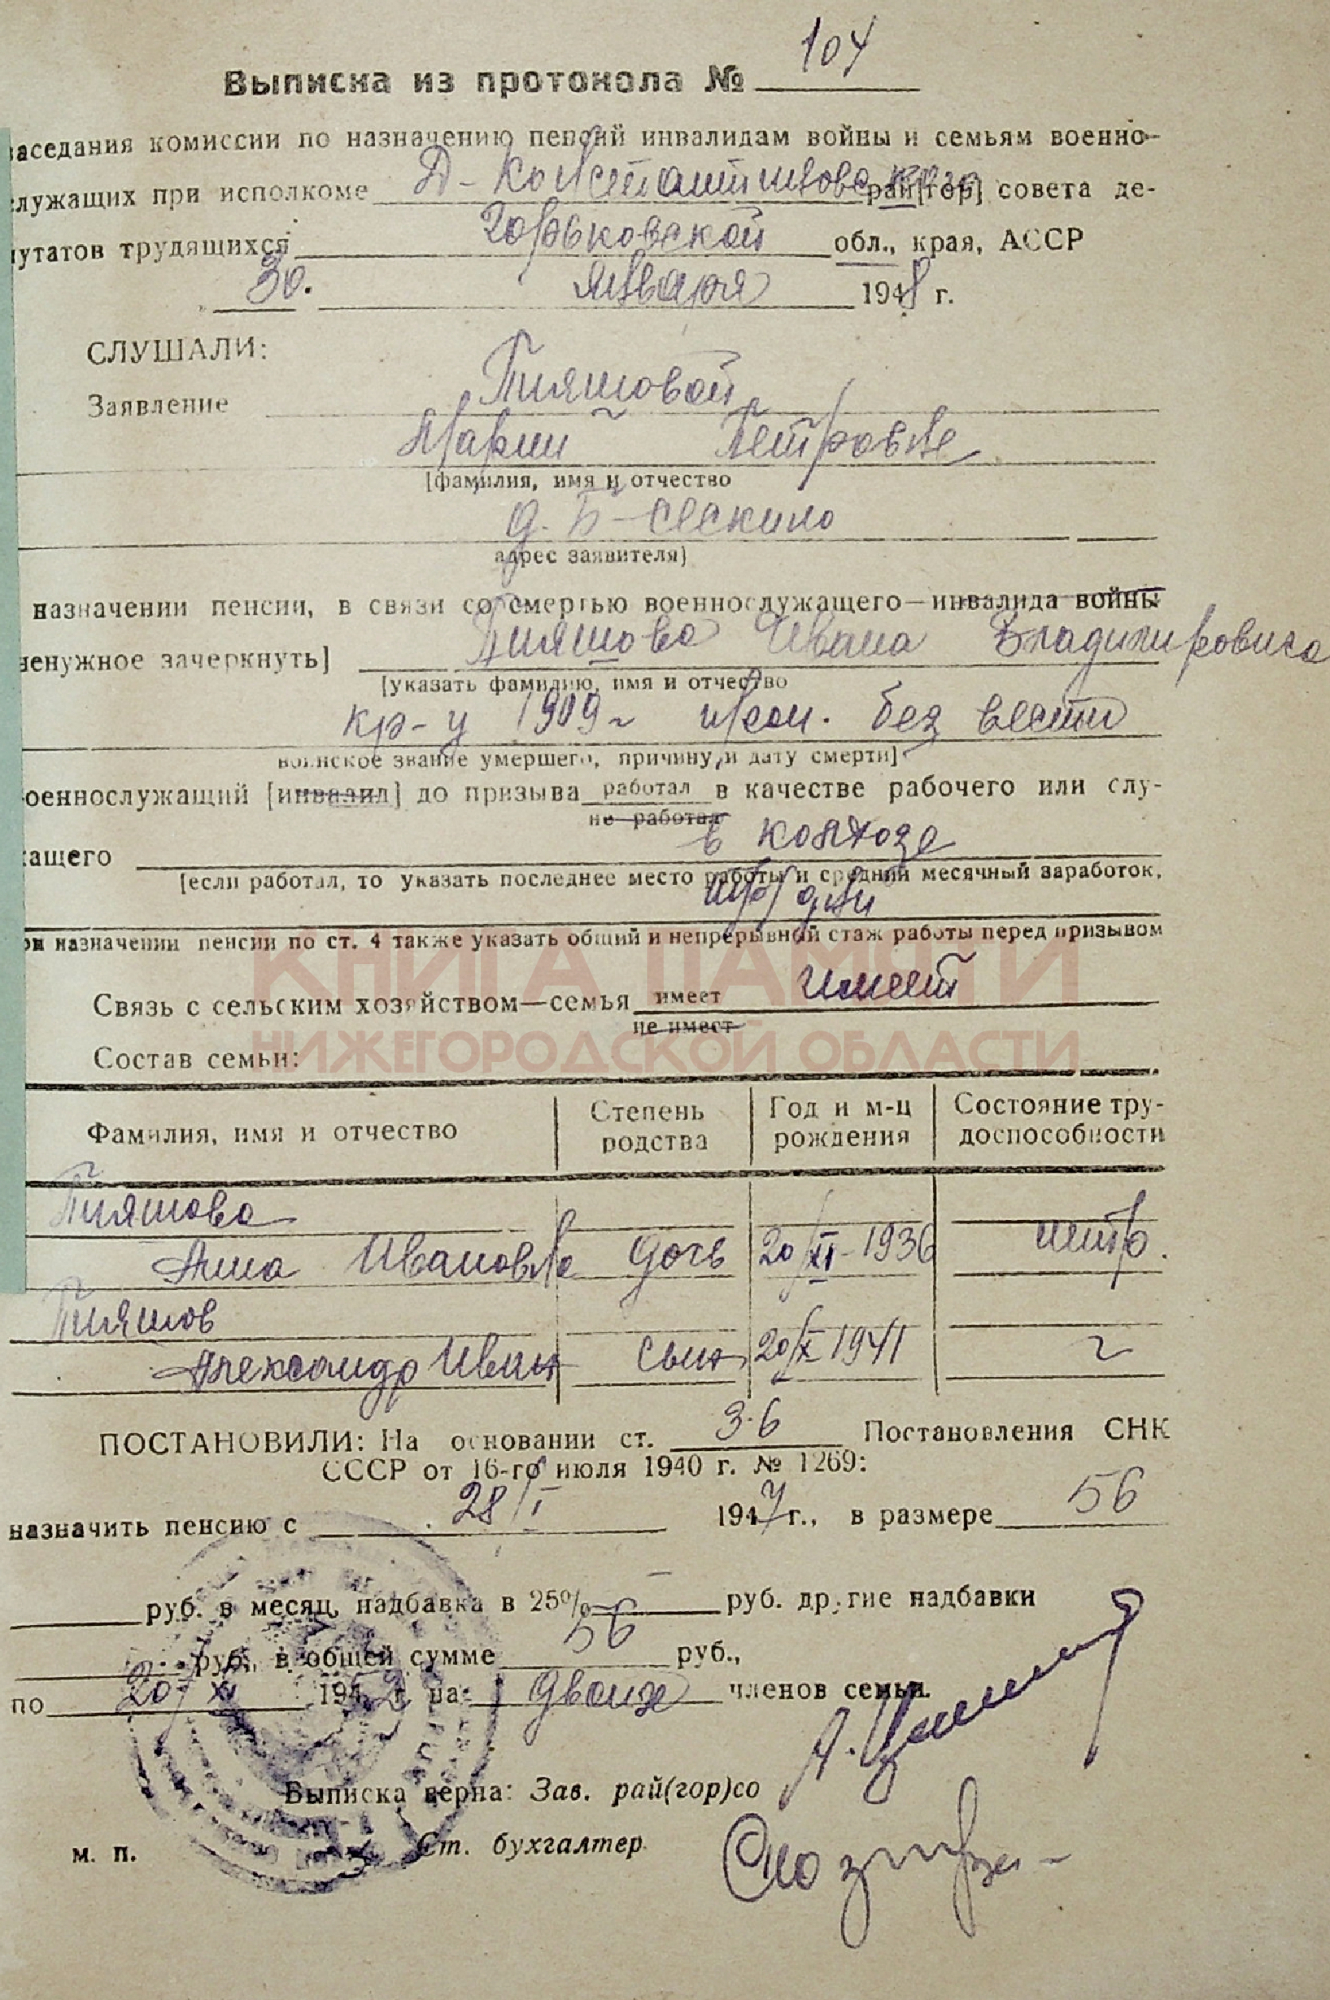 Выписка из протокола № 104
заседания комиссии по назначению пенсий инвалидам войны и семьям военно-
служащих при исполкоме Д-Константиновского рай[гор] совета де-
путатов трудящихся Горьковской обл., края, АССР
30. января 1948 г.
СЛУШАЛИ:
Заявление Пияшовой
Марии Петровне
[фамилия, имя и отчество
д. Б-Сескино
адрес заявителя]
назначении пенсии, в связи со смертью военнослужащего—инвалида войны
ненужное зачеркнуть] Пияшова Ивана Владимировича
[указать фамилию, имя и отчество
кр-ц 1909 г проп. без вести
воинское звание умершего, причину и дату смерти]
военнослужащий [инвалид] до призыва работал в качестве рабочего или слу-
не работал
жащего в колхозе
[если работал, то указать последнее место работы и средний месячный заработок,
тр/дни
при назначении пенсии по ст. 4 также указать общий и непрерывный стаж работы перед призывом
КНИГА ПАМЯТИ
Связь с сельским хозяйством—семья имеет имеет
не имеет
НИЖЕГОРОДСКОЙ ОБЛАСТИ
Состав семьи:
Фамилия, имя и отчество Степень родства Год и м-ц рождения Состояние тру-
доспособности
Пияшова
Анна Ивановна дочь 20/XI-1936 нетр.
Пияшов
Александр Иван сын 20/X 1941 "
ПОСТАНОВИЛИ: На основании ст. 3.6 Постановления СНК
СССР от 16-го июля 1940 г. № 1269:
назначить пенсию с 28/I 1947 г., в размере 56
руб. в месяц, надбавка в 25% — руб. другие надбавки
руб., в общей сумме 56 руб.,
по 20/XI 1952 г. на двоих членов семьи.
Выписка верна: Зав. рай(гор)со
м. п. Ст. бухгалтер